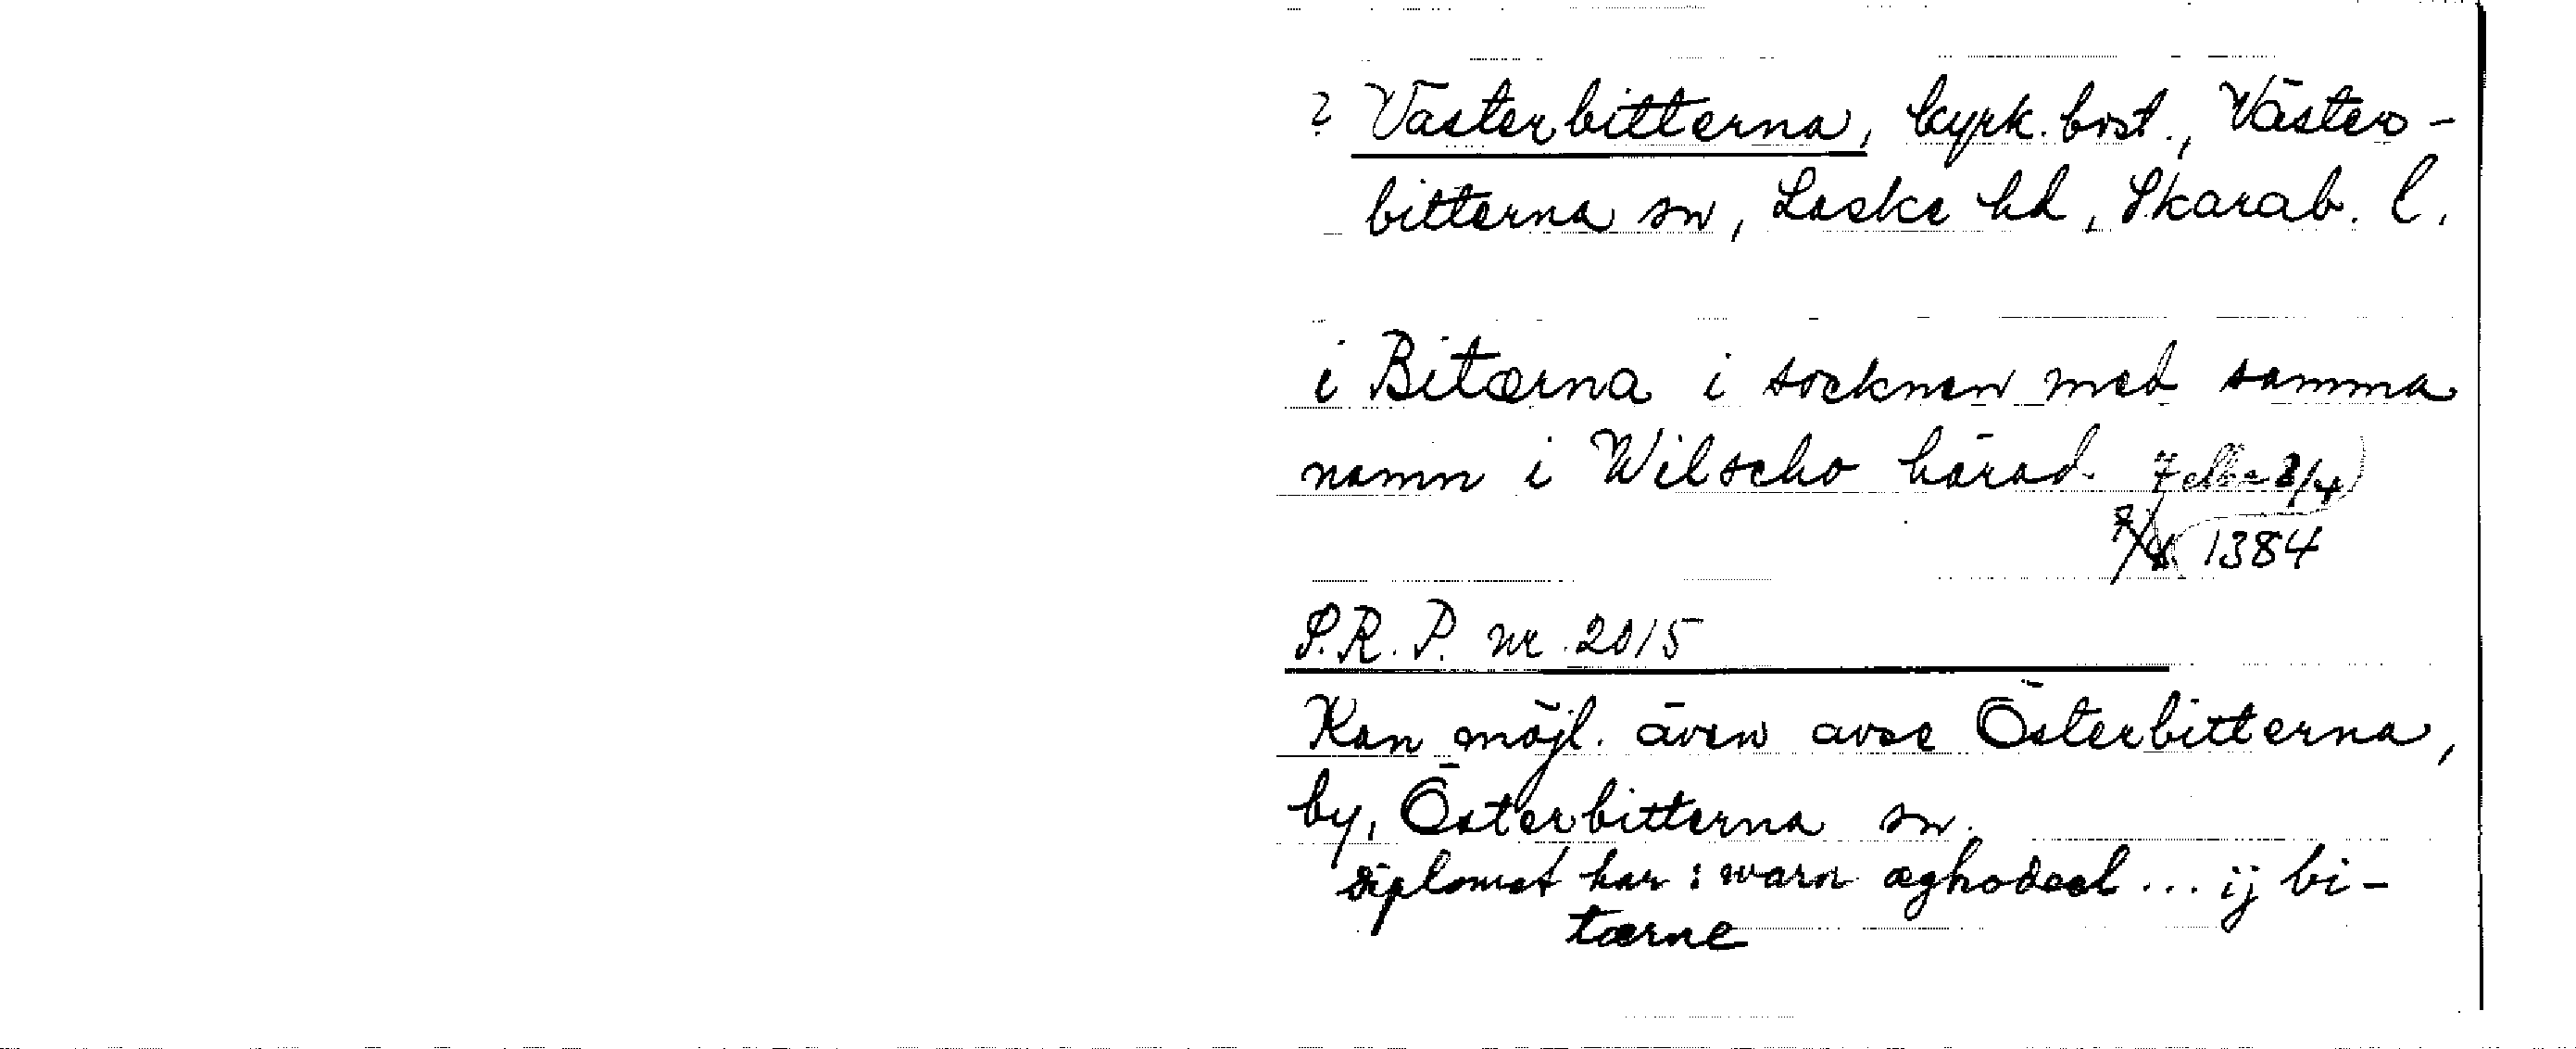 ? Västerbitterna, kyrk. bost., Väster-
bitterna sn, Laske hd, Skarab. l.
i Bitærna i socknen med samma
namn i Wilscho härad. 7 elle 8/4
1384
S.R.P. nr 2015
Kan möjl. även avse Österbitterna,
by, Österbitterna sn.
diplomet har: warn æghodeel ... ij bi-
tærne